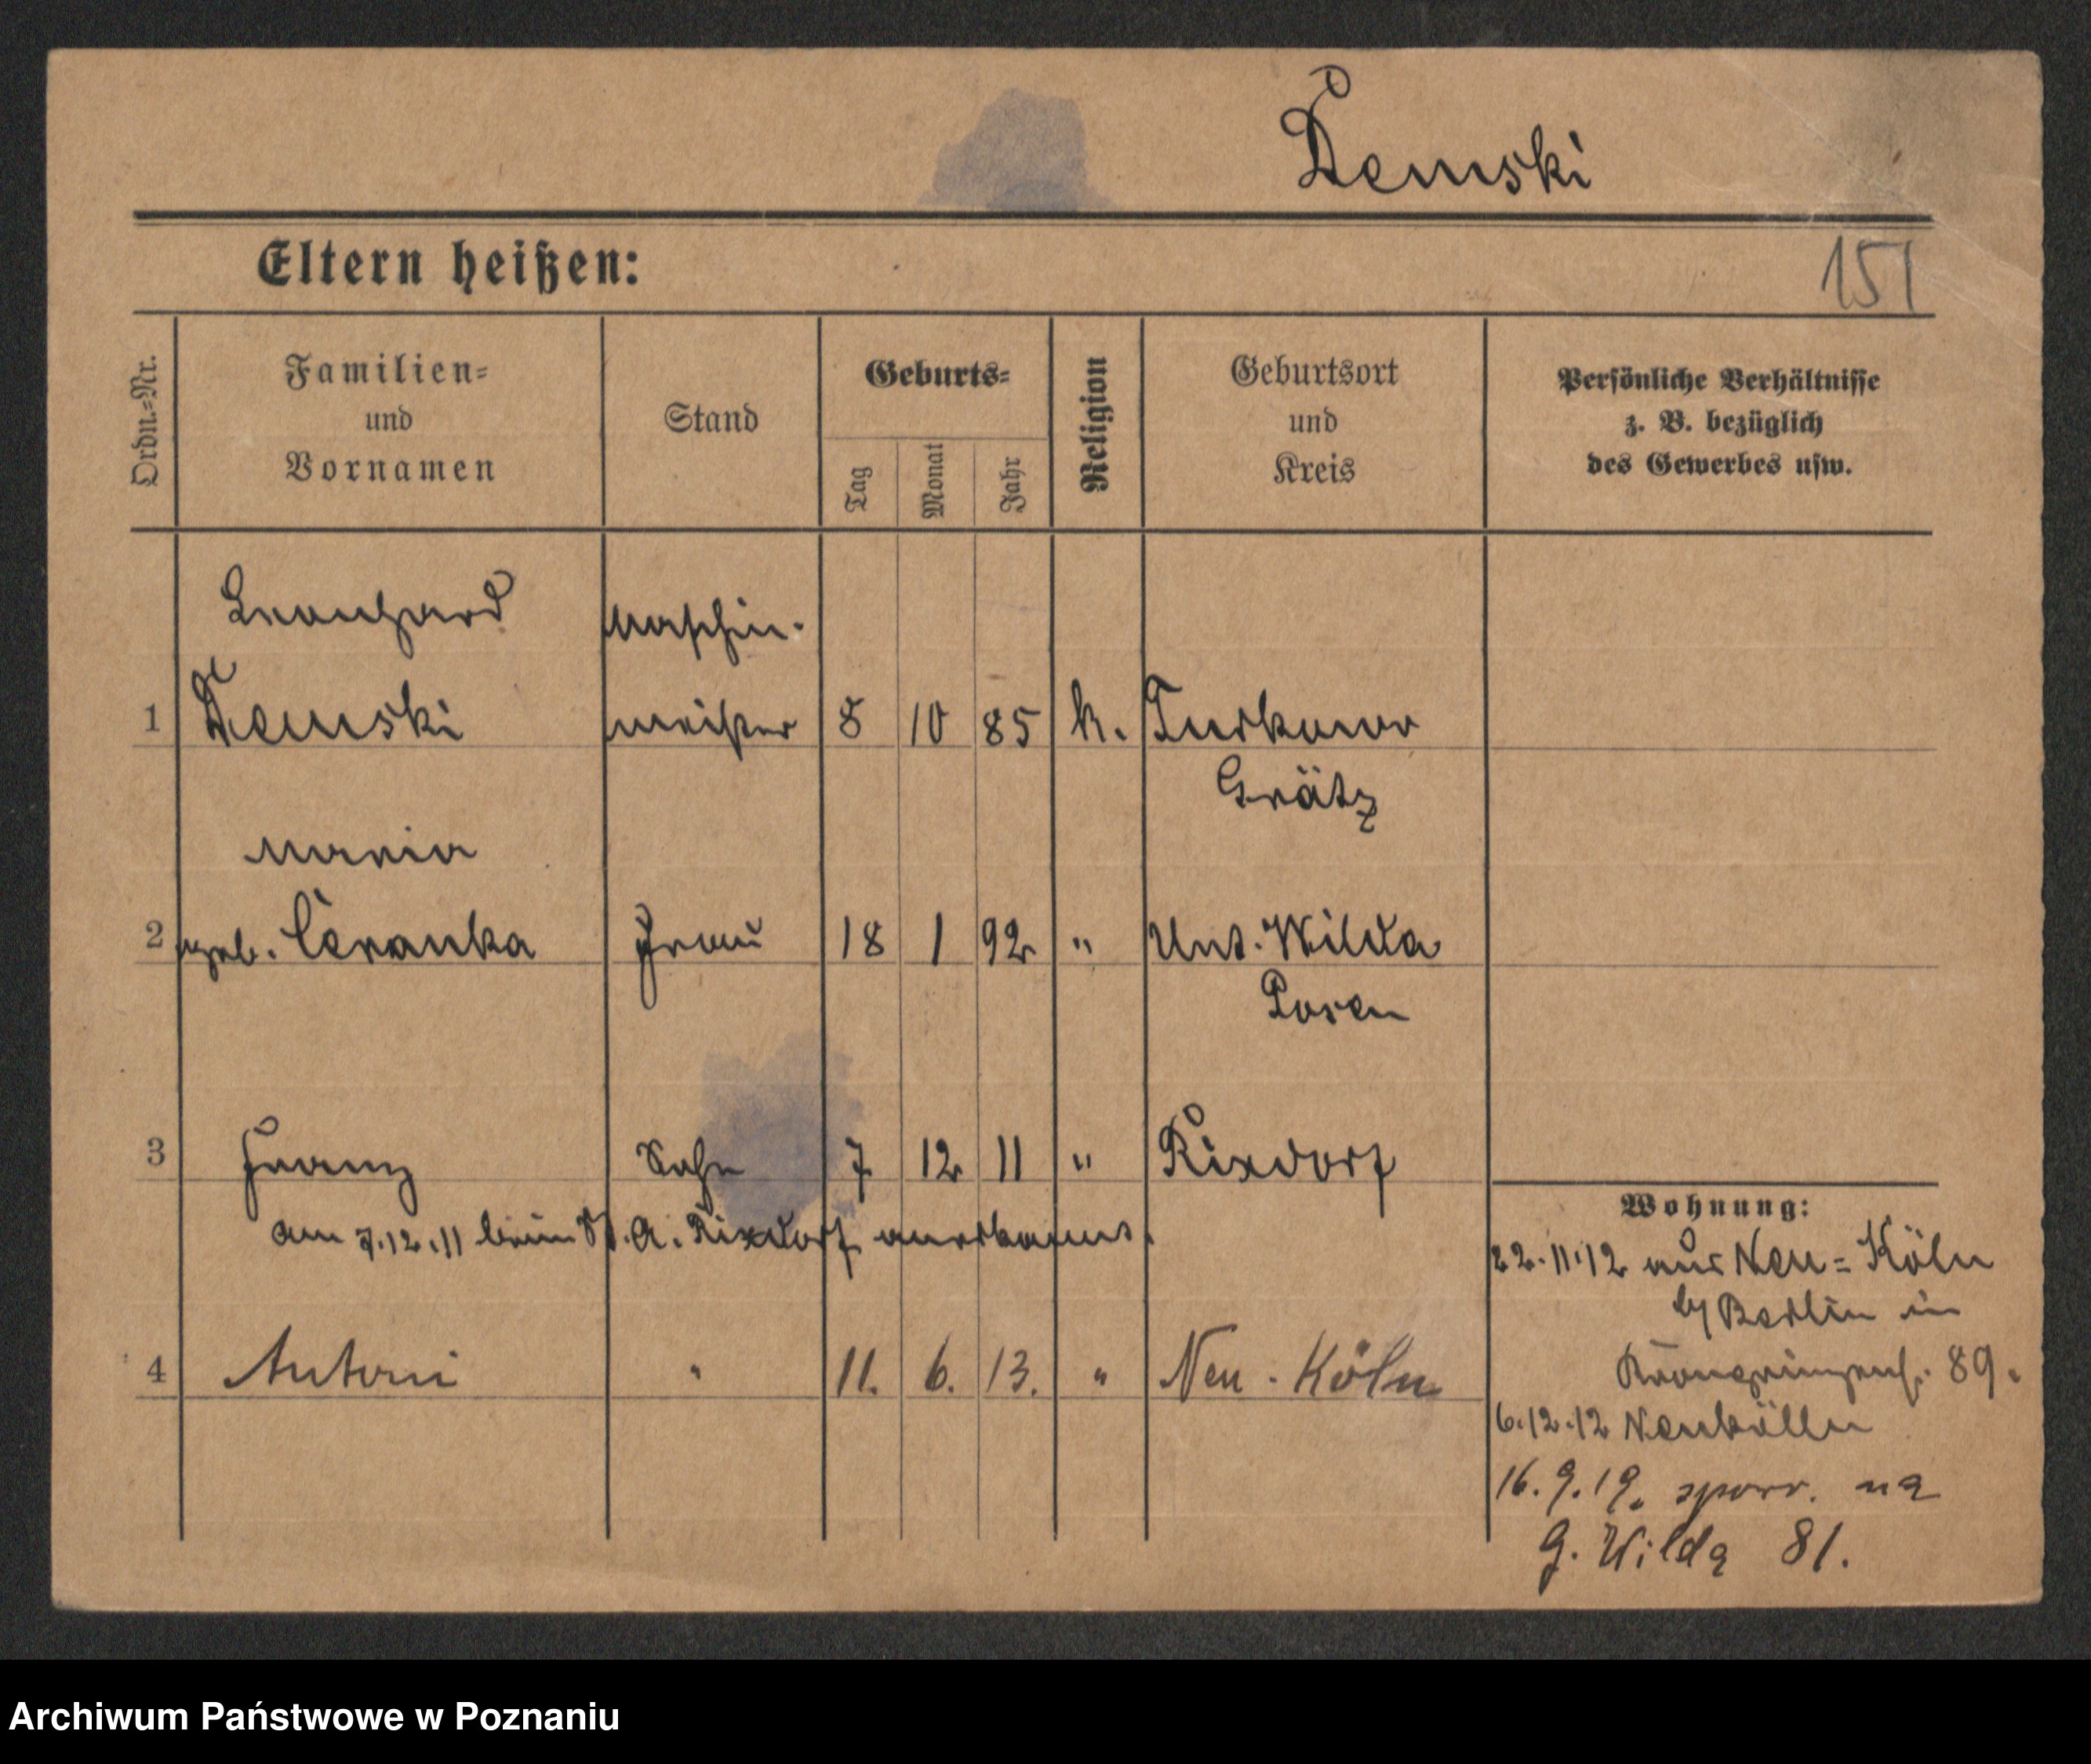 Demski
Eltern heißen:
151
Ordn.=Nr.
Familien=
und
Vornamen
Stand
Geburts=
Tag
Monat
Jahr
Religion
Geburtsort
und
Kreis
Persönliche Verhältnisse
z. B. bezüglich
des Gewerbes usw.
Leonhard Maschin-
1 Demski meister 8 10 85 k. Turkowo
Grätz
Maria
2 geb. Ceranka Frau 18 1 92 " Unt. Wilda
Posen
3 Franz Sohn 7 12 11 " Rixdorf
am 7.12.11 beim St. A. Rixdorf anerkannt.
4 Antoni " 11. 6. 13. " Neu-Köln
Wohnung:
22.11.12 aus Neu=Köln
b/ Berlin in
Kronprinzenst. 89.
6.12.12 Neukölln
16.9.19. spow. na
G. Wildą 81.
Archiwum Państwowe w Poznaniu